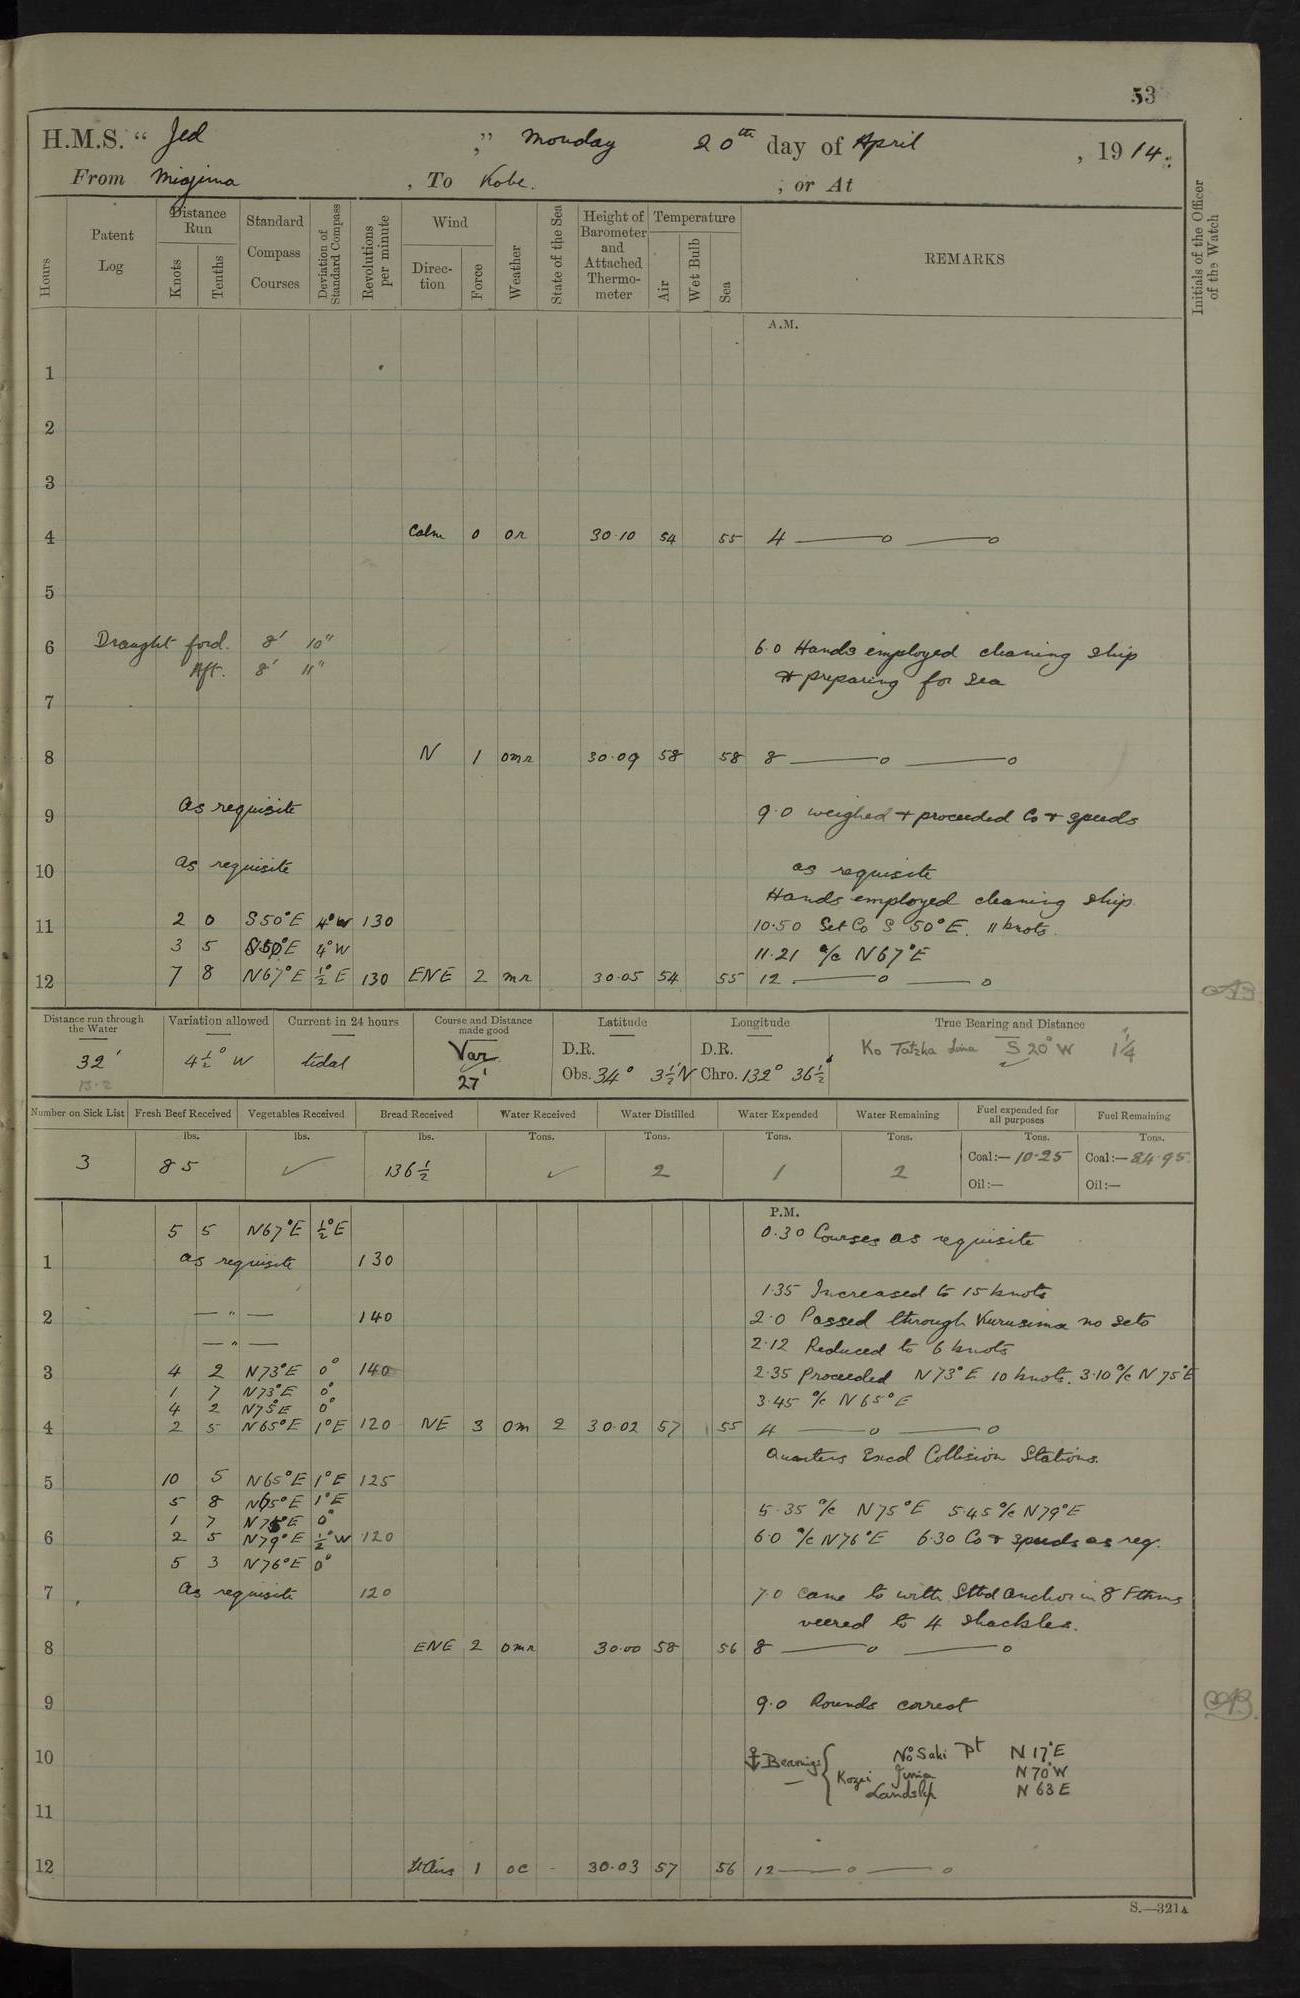 53
H.M.S. “ Jed ,” Monday 20th day of April , 1914.
From Miojima , To Kobe. ; or At
Hours Patent Log Distance Run Knots Tenths Standard Compass Courses Deviation of Standard Compass Revolutions per minute Wind Direc-tion Force Weather State of the Sea Height of Barometer and Attached Thermo-meter Temperature Air Wet Bulb Sea REMARKS Initials of the Officer of the Watch
A.M.
1
2
3
4 Calm 0 or 30.10 54 55 4 —o —o
5
6 Draught ford. 8' 10" 6.0 Hands employed cleaning ship
Aft. 8' 11" & preparing for sea
7
8 N 1 omr 30.09 58 58 8 —o —o
9 As requisite 9.0 weighed + proceeded Co + speeds
10 As requisite as requisite
Hands employed cleaning ship.
11 2 0 S50°E 4°W 130 10.50 Set Co S 50°E. 11 knots.
3 5 S50°E 4°W 11.21 a/c N67°E
12 7 8 N67°E ½°E 130 ENE 2 mr 30.05 54 55 12 —o —o
Distance run through the Water Variation allowed Current in 24 hours Course and Distance made good Latitude Longitude True Bearing and Distance
32' 4½° W tidal Var. 27' D.R. D.R. Ko Tatzha Sima S 20° W 1¼'
13.2 Obs. 34° 3½'N Chro. 132° 36½'
Number on Sick List Fresh Beef Received Vegetables Received Bread Received Water Received Water Distilled Water Expended Water Remaining Fuel expended for all purposes Fuel Remaining
lbs. lbs. lbs. Tons. Tons. Tons. Tons. Tons. Tons.
3 85 ✓ 136½ ✓ 2 1 2 Coal:— 10.25 Coal:— 84.95
Oil:— Oil:—
P.M.
5 5 N67°E ½°E 0.30 Courses as requisite
1 as requisite 130
1.35 Increased to 15 knots
2 — " — 140 2.0 Passed through Kurusima no Seto
— " — 2.12 Reduced to 6 knots
3 4 2 N73°E 0° 140 2.35 Proceeded N73°E 10 knots. 3.10 a/c N75°E
1 7 N73°E 0°
4 2 N75°E 0° 3.45 a/c N65°E
4 2 5 N65°E 1°E 120 NE 3 om 2 30.02 57 55 4 —o —o
Quarters Exed Collision Stations.
5 10 5 N65°E 1°E 125
5 8 N65°E 1°E 5.35 a/c N75°E 5.45 a/c N79°E
1 7 N75°E 0°
6 2 5 N79°E ½°W 120 6.0 a/c N76°E 6.30 Co + speeds as req.
5 3 N76°E 0°
7 As requisite 120 7.0 came to with Stbd anchor in 8 Fthms
veered to 4 shackles.
8 ENE 2 omr 30.00 58 56 8 —o —o
9 9.0 Rounds correct
10 ⚓ Bearings { No Saki Pt N 17°E
Kozei Jima N 70°W
Landslip N 63 E
11
12 Lt Airs 1 oc - 30.03 57 56 12 —o —o
S.—321A